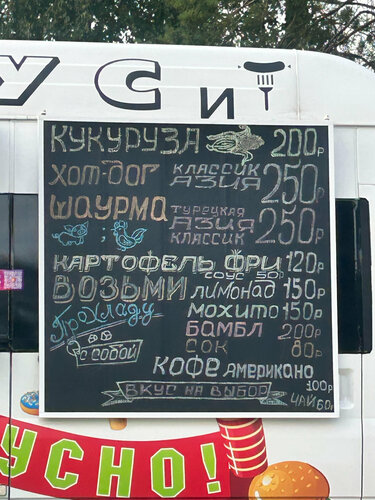 УСИТ
КУКУРУЗА 200р
ХОТ-ДОГ КЛАССИК АЗИЯ 250р
ШАУРМА ТУРЕЦКАЯ АЗИЯ КЛАССИК 250р
КАРТОФЕЛЬ ФРИ 120р
СОУС 50р
ВОЗЬМИ ЛИМОНАД 150р
Прохладу МОХИТО 150р
БАМБЛ 200р
с собой СОК 80р
КОФЕ АМЕРИКАНО 100р
ВКУС НА ВЫБОР ЧАЙ 60р
УСНО!